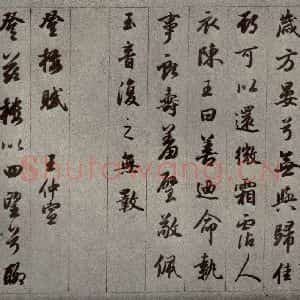 歲方晏兮無與歸佳
期可以還微霜霑人
衣陳王曰善迺命執
事獻壽羞璧敬佩
玉音復之無斁
登樓賦
王仲宣
登茲樓以四望兮聊
Shufawang.CN